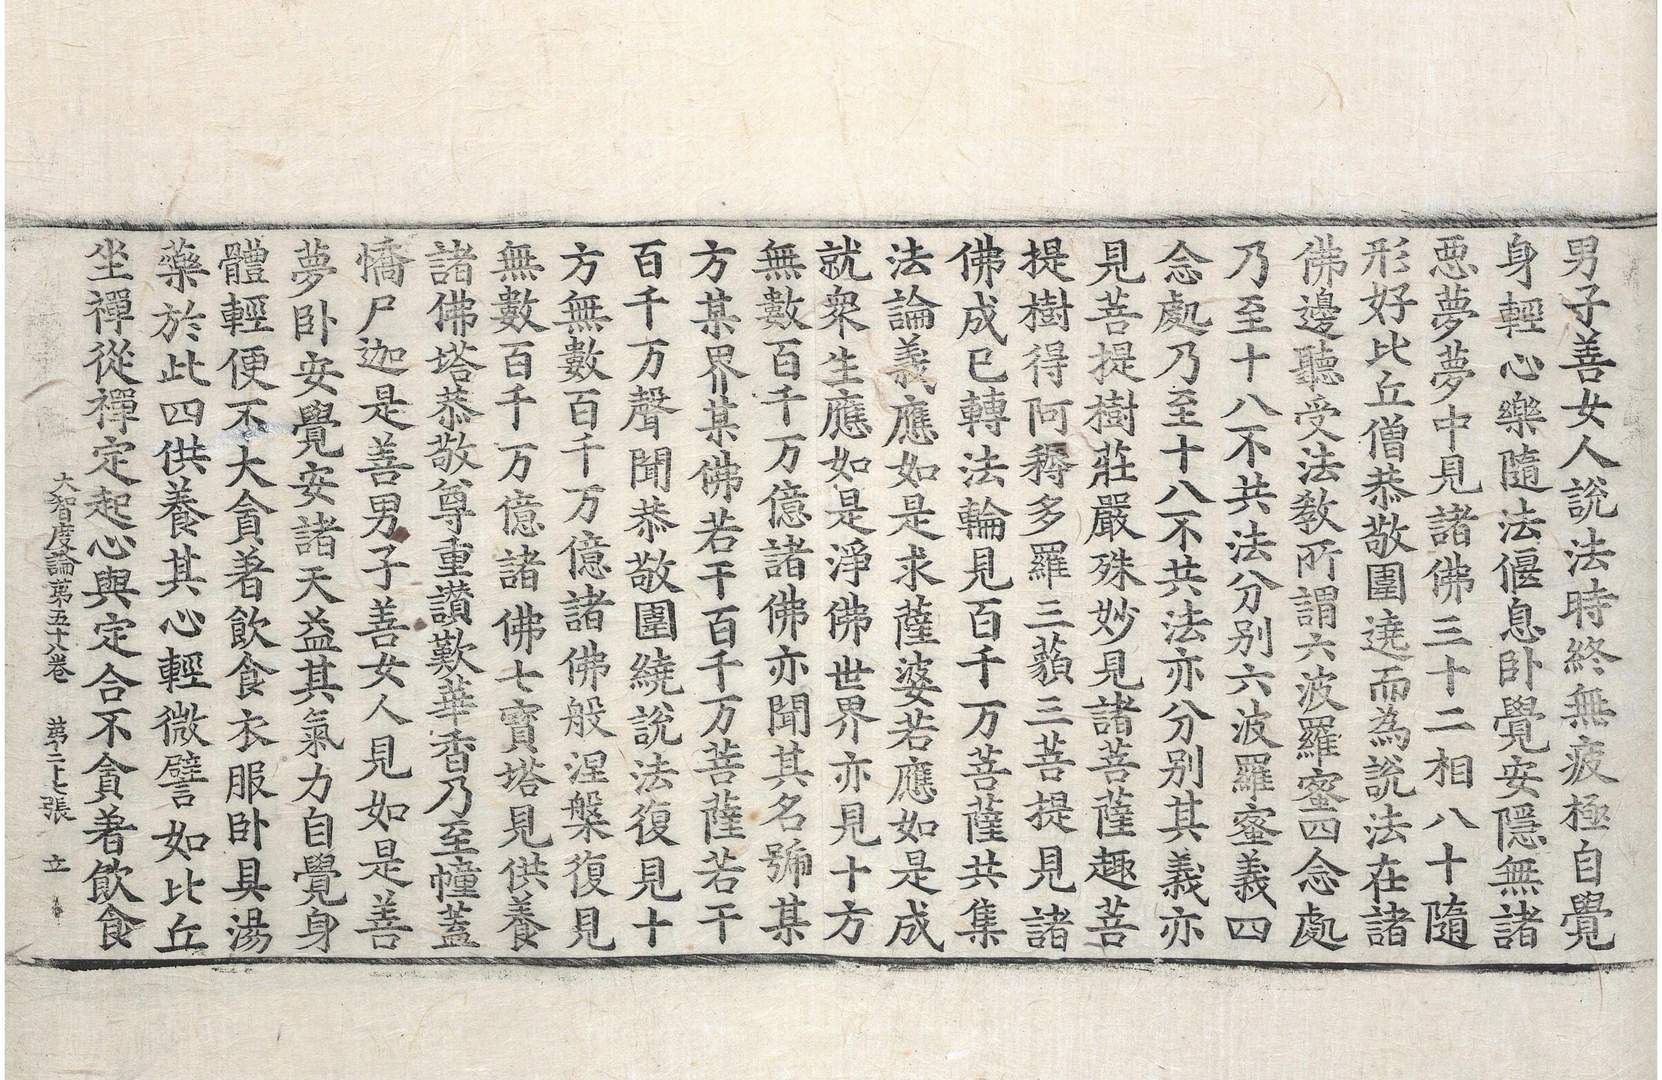 男子善女人說法時終無疲極自覺
身輕心樂隨法偃息卧覺安隱無諸
惡夢夢中見諸佛三十二相八十隨
形好比丘僧恭敬圍遶而為說法在諸
佛邊聽受法教所謂六波羅蜜四念處
乃至十八不共法分別六波羅蜜義四
念處乃至十八不共法亦分別其義亦
見菩提樹莊嚴殊妙見諸菩薩趣菩
提樹得阿耨多羅三藐三菩提見諸
佛成已轉法輪見百千万菩薩共集
法論義應如是求薩婆若應如是成
就衆生應如是淨佛世界亦見十方
無數百千万億諸佛亦聞其名號某
方某界某佛若干百千万菩薩若干
百千万聲聞恭敬圍繞說法復見十
方無數百千万億諸佛般涅槃復見
無數百千万億諸佛七寶塔見供養
諸佛塔恭敬尊重讃歎華香乃至幢蓋
憍尸迦是善男子善女人見如是善
夢卧安覺安諸天益其氣力自覺身
體輕便不大貪著飲食衣服卧具湯
藥於此四供養其心輕微譬如比丘
坐禪從禪定起心與定合不貪著飲食
大智度論苐五十八卷　苐二十七張　立